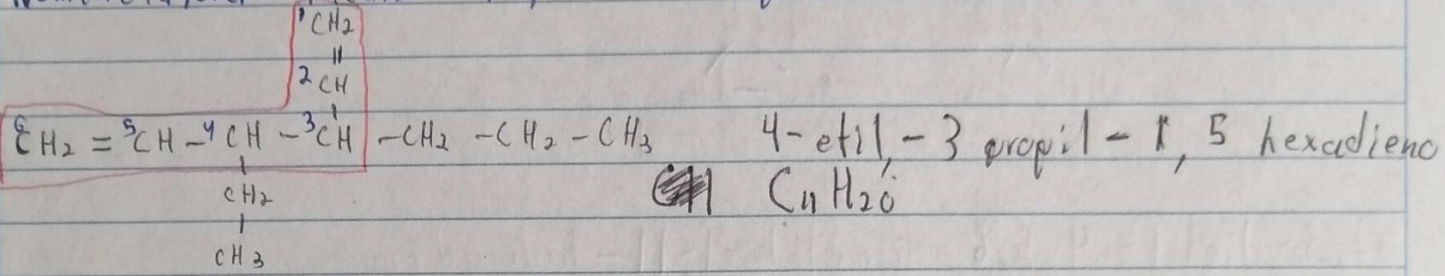 ¹CH2
||
²CH
|
⁶CH2 = ⁵CH - ⁴CH - ³CH - CH2 - CH2 - CH3 4-etil,-3 propil-1, 5 hexadieno
|
CH2 C11H20
|
CH3